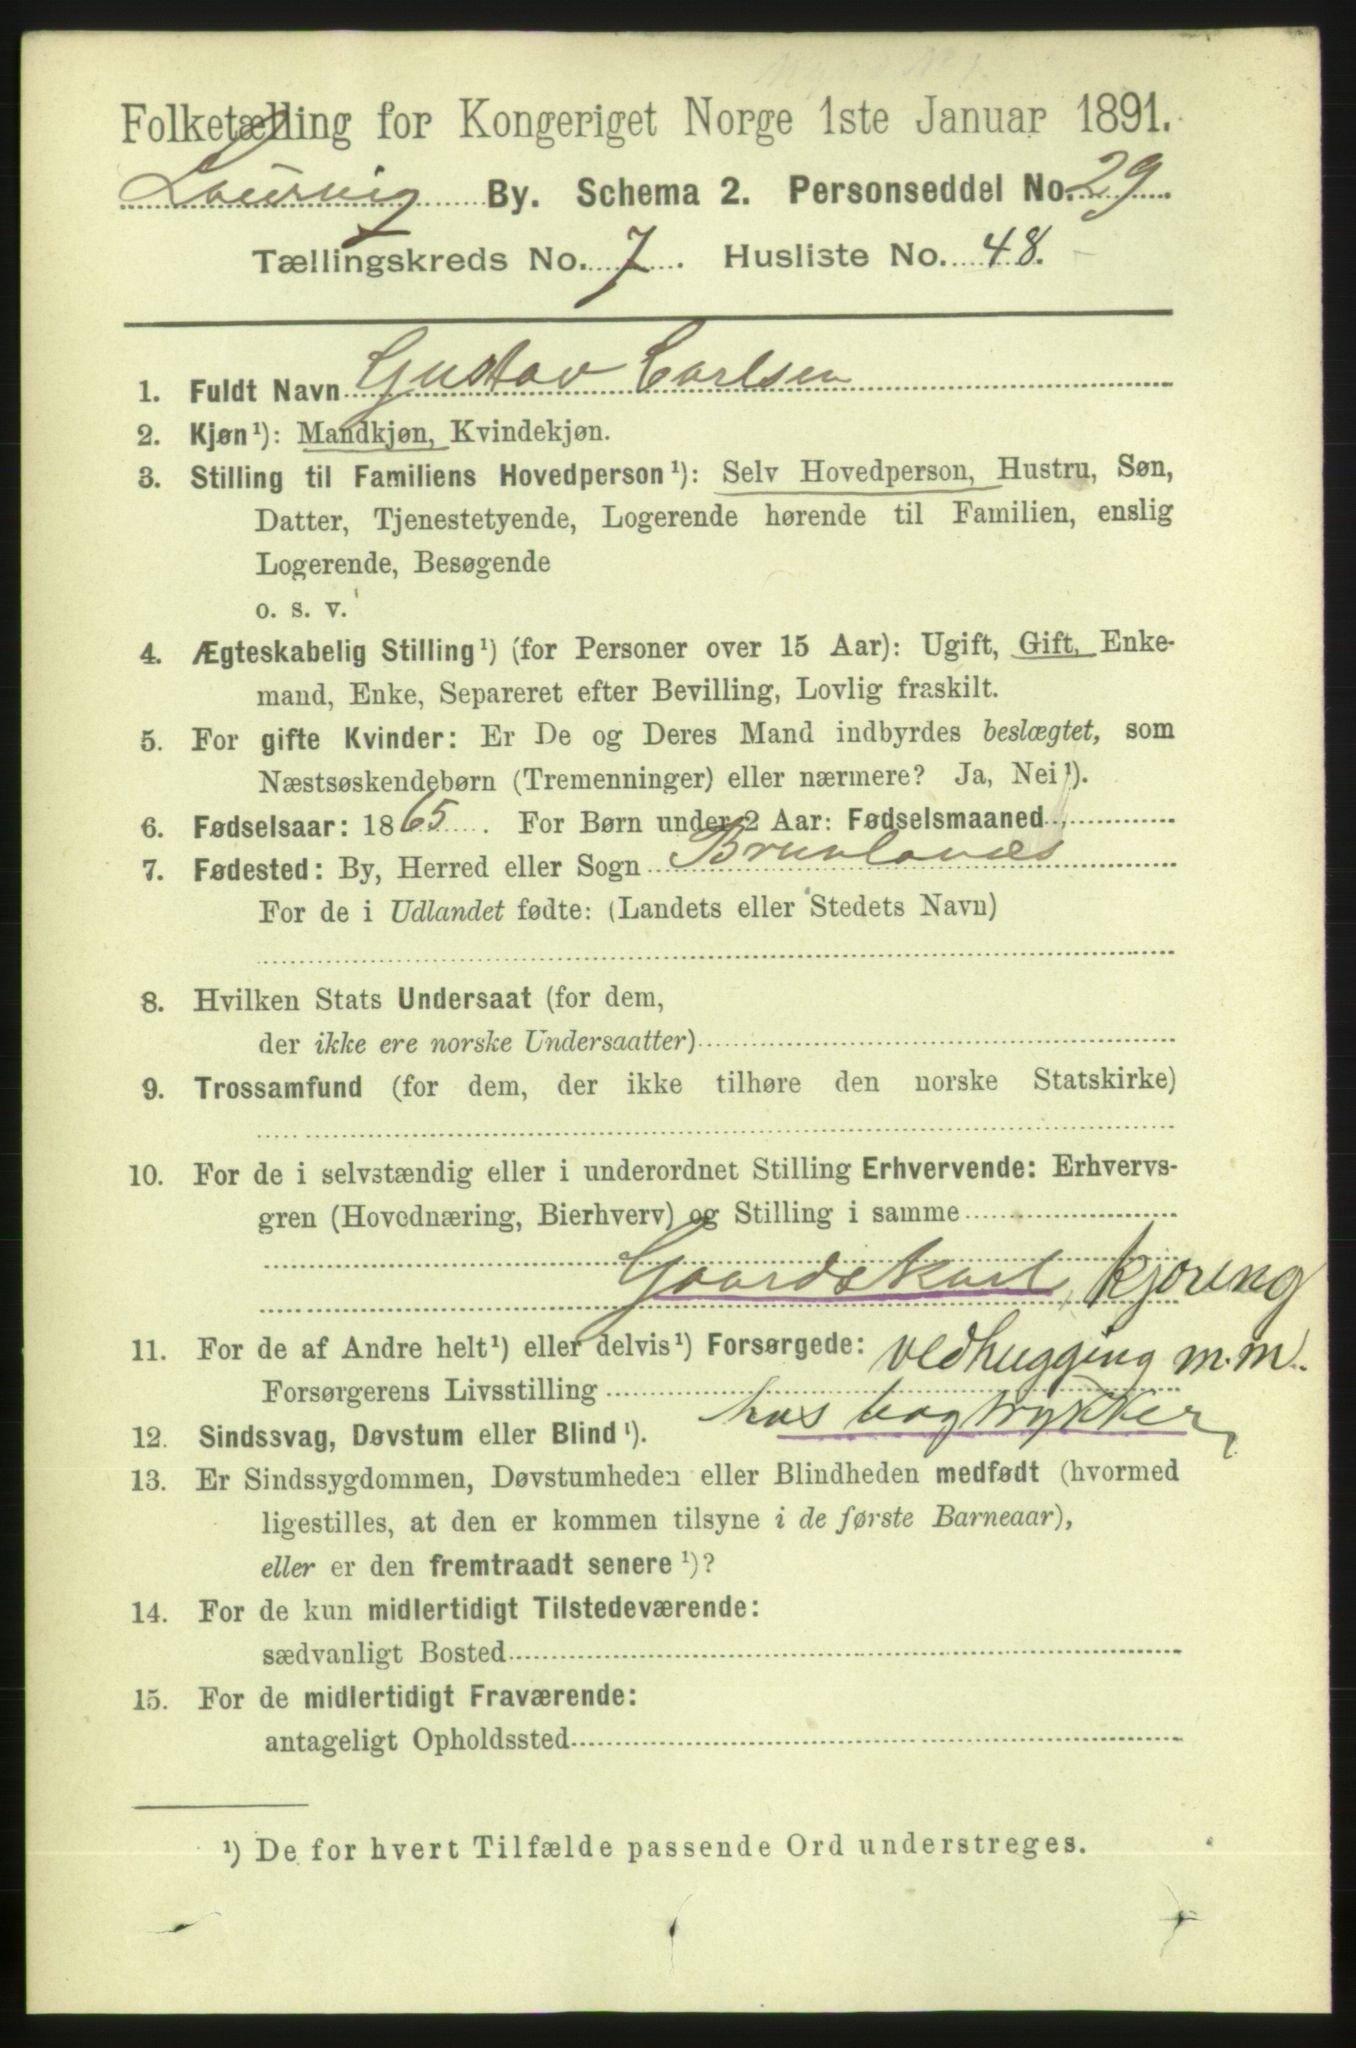 Folketælling for Kongeriget Norge 1ste Januar 1891.
Laurvig By. Schema 2. Personseddel No. 29
Tællingskreds No. 7. Husliste No. 48.
1. Fuldt Navn Gustav Carlsen
2. Kjøn¹): Mandkjøn, Kvindekjøn.
3. Stilling til Familiens Hovedperson¹): Selv Hovedperson, Hustru, Søn,
Datter, Tjenestetyende, Logerende hørende til Familien, enslig
Logerende, Besøgende
o. s. v.
4. Ægteskabelig Stilling¹) (for Personer over 15 Aar): Ugift, Gift, Enke-
mand, Enke, Separeret efter Bevilling, Lovlig fraskilt.
5. For gifte Kvinder: Er De og Deres Mand indbyrdes beslægtet, som
Næstsøskendebørn (Tremenninger) eller nærmere? Ja, Nei¹).
6. Fødselsaar: 1865. For Børn under 2 Aar: Fødselsmaaned
7. Fødested: By, Herred eller Sogn Brunlanæs
For de i Udlandet fødte: (Landets eller Stedets Navn)
8. Hvilken Stats Undersaat (for dem,
der ikke ere norske Undersaatter)
9. Trossamfund (for dem, der ikke tilhøre den norske Statskirke)
10. For de i selvstændig eller i underordnet Stilling Erhvervende: Erhvervs-
gren (Hovednæring, Bierhverv) og Stilling i samme
Gaardskarl, kjøring
11. For de af Andre helt¹) eller delvis¹) Forsørgede: vedhugging m.m.
Forsørgerens Livsstilling
hos bogtrykker
12. Sindssvag, Døvstum eller Blind¹).
13. Er Sindssygdommen, Døvstumheden eller Blindheden medfødt (hvormed
ligestilles, at den er kommen tilsyne i de første Barneaar),
eller er den fremtraadt senere¹)?
14. For de kun midlertidigt Tilstedeværende:
sædvanligt Bosted
15. For de midlertidigt Fraværende:
antageligt Opholdssted
¹) De for hvert Tilfælde passende Ord understreges.